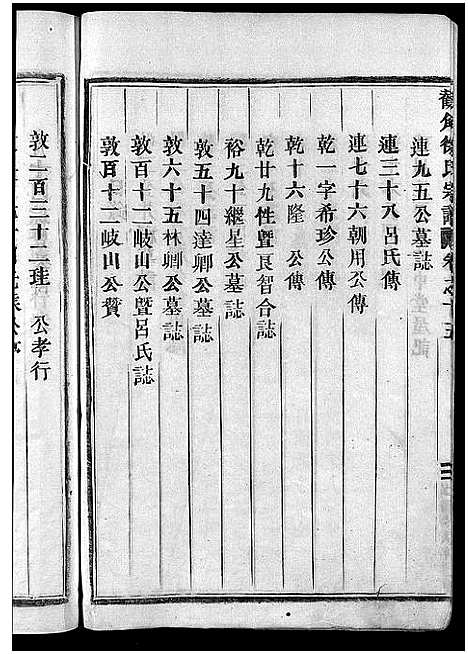 徐氏宗譜 卷之十五
連九五公墓誌
連三十八呂氏傳
連七十六朝用公傳
乾一字希珍公傳
乾十六隆 公傳
乾廿九性暨艮智合誌
裕九十繼星公墓誌
敦五十四達卿公墓誌
敦六十五林卿公墓誌
敦百十二岐山公暨呂氏誌
敦百十二岐山公贊
敦二百三十二珪 公孝行